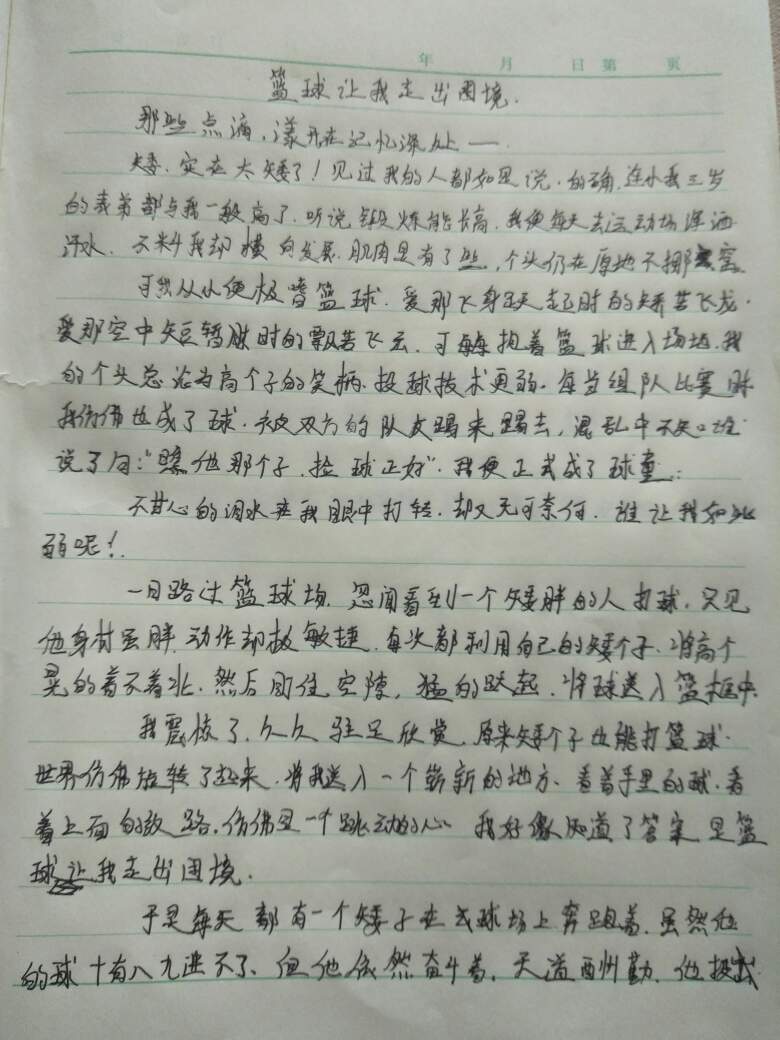 年 月 日 第 页
篮球让我走出困境.
那些点滴,漾开在记忆深处——
矮.实在太矮了!见过我的人都如是说.的确,连小我三岁
的表弟都与我一般高了.听说锻炼能长高.我便每天去运动场挥洒
汗水.不料我却横向发展.肌肉是有了些,个头仍在原地不挪窝
可我从小便极嗜篮球.爱那飞身跃起时的矫若飞龙.
爱那空中短暂腾时的飘若飞云.可每每抱着篮球进入场地.我
的个头总沦为高个子的笑柄.投球技术更弱.每当组队比赛时
我仿佛也成了球.被双方的队友踢来踢去,混乱中不知谁
说了句:"瞧他那个子.捡球正好".我便正式成了球童.
不甘心的泪水在我眼中打转.却又无可奈何.谁让我如此
弱呢!
一日路过篮球场.忽闻看到一个矮胖的人打球.只见
他身材虽胖.动作却极敏捷.每次都利用自己的矮个子.将高个
晃的着不着北.然后盯住空隙,猛的跃起.将球送入篮框中.
我震惊了.久久驻足欣赏.原来矮个子也能打篮球.
世界仿佛旋转了起来.将我送入一个崭新的地方.看着手里的球.看
着上面的纹路.仿佛是一个跳动的心 我好像知道了答案 是篮
球让我走出困境.
于是每天都有一个矮子在球场上奔跑着.虽然他
的球十有八九进不了.但他依然奋斗着.天道酬勤.他投